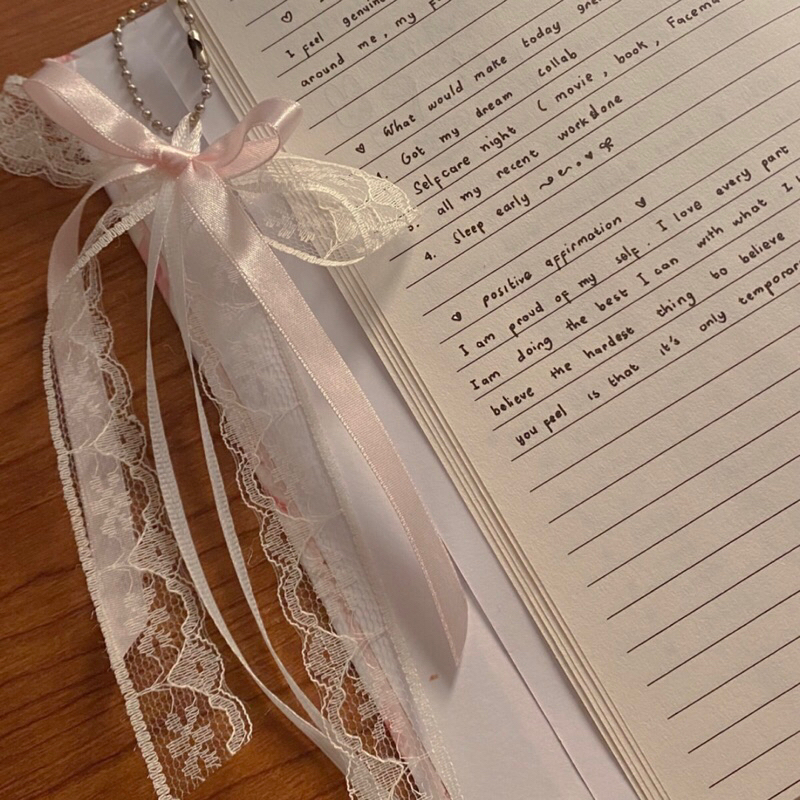 ♡
I feel genuin
around me, my f
♥ What would make today gre
1. Got my dream collab
Selfcare night ( movie, book, Facema
3. all my recent work done
4. Sleep early
♡ positive affirmation ♥
I am proud of my self. I love every part
I am doing the best I can with what I h
believe the hardest thing to believe
you feel is that it's only temporar